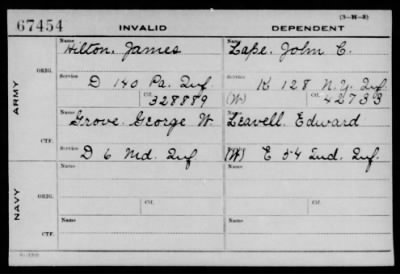 (3-H-2)
67454 INVALID DEPENDENT
ARMY
ORIG.
Name Hilton, James Name Lape, John C.
Service D 140 Pa. Inf Service K 128 N.Y. Inf
Ctf. 328889 (W) Ctf. 42733
CTF.
Name Grove, George W. Name Leavell, Edward
Service D 6 Md. Inf Service (W) E 54 Ind. Inf.
NAVY
ORIG.
Name Name
Service Ctf. Service Ctf.
CTF.
Name Name